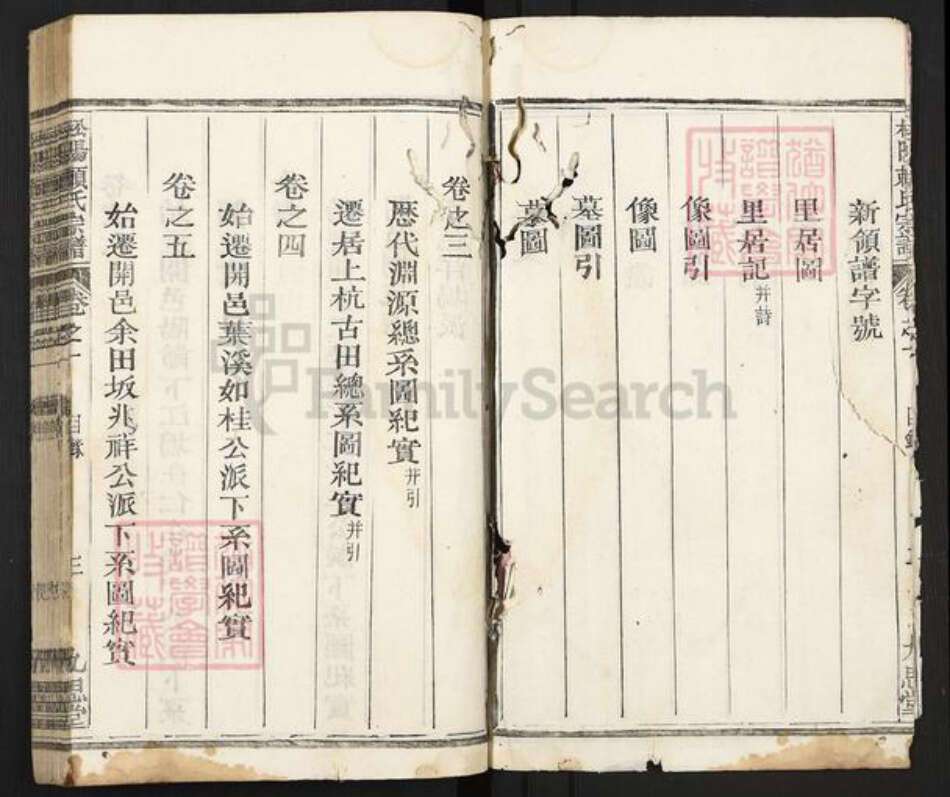 新領譜字號
里居圖
里居記 并詩
像圖引
像圖
墓圖引
墓圖
卷之三
歷代淵源總系圖紀實 并引
遷居上杭古田總系圖紀實 并引
卷之四
始遷開邑葉溪如桂公派下系圖紀實
卷之五
始遷開邑余田坂兆祥公派下系圖紀實
松陽賴氏宗譜 卷之一 目錄 三 九思堂
FamilySearch